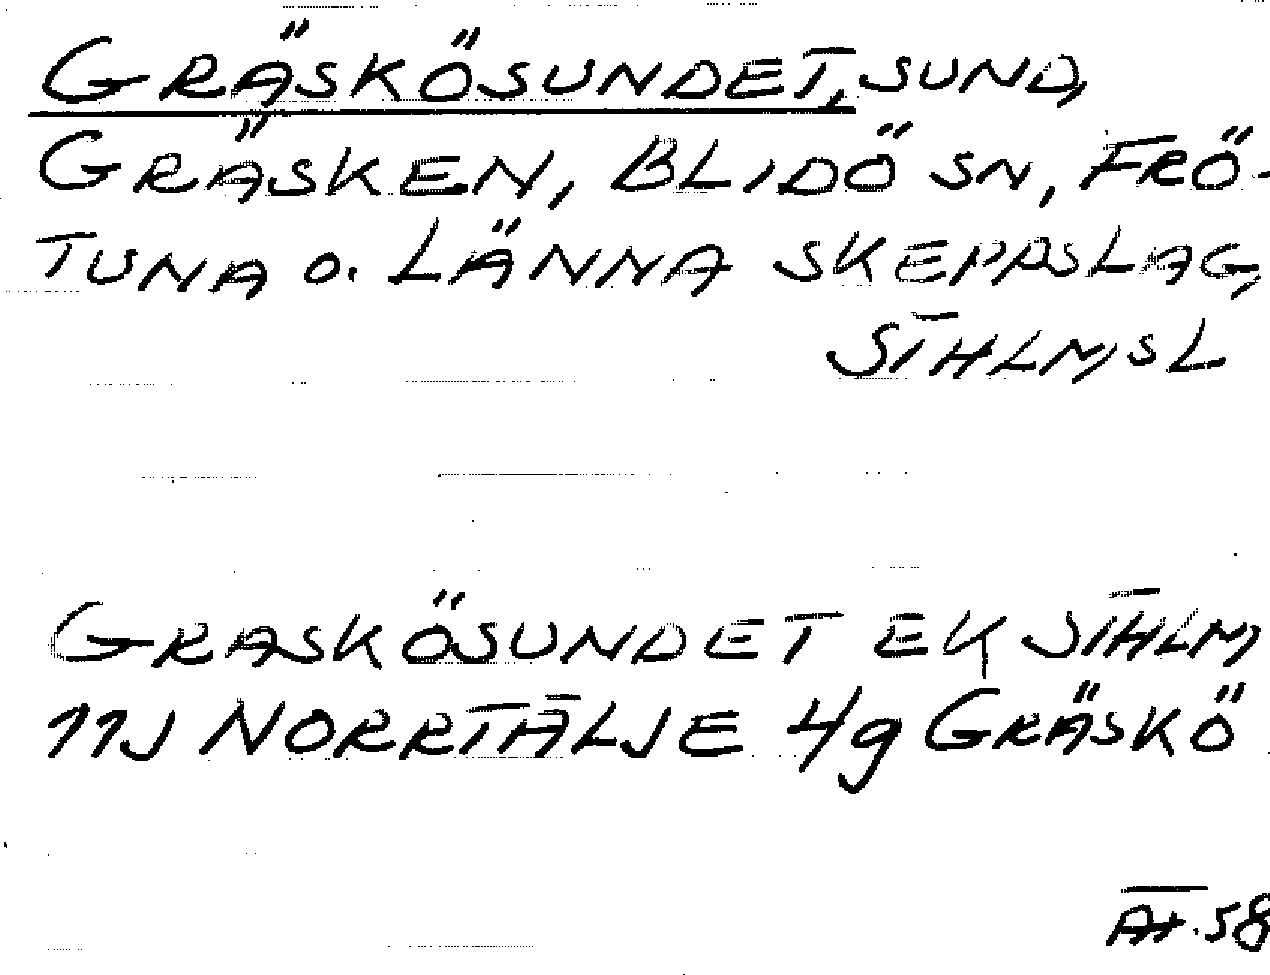 GRÄSKÖSUNDET, SUND,
GRÄSKEN, BLIDÖ SN, FRÖ-
TUNA O. LÄNNA SKEPPSLAG,
STHLM,S L
GRASKÖSUNDET EK STHLM,
11J NORRTÄLJE 4g GRÄSKÖ
At.58